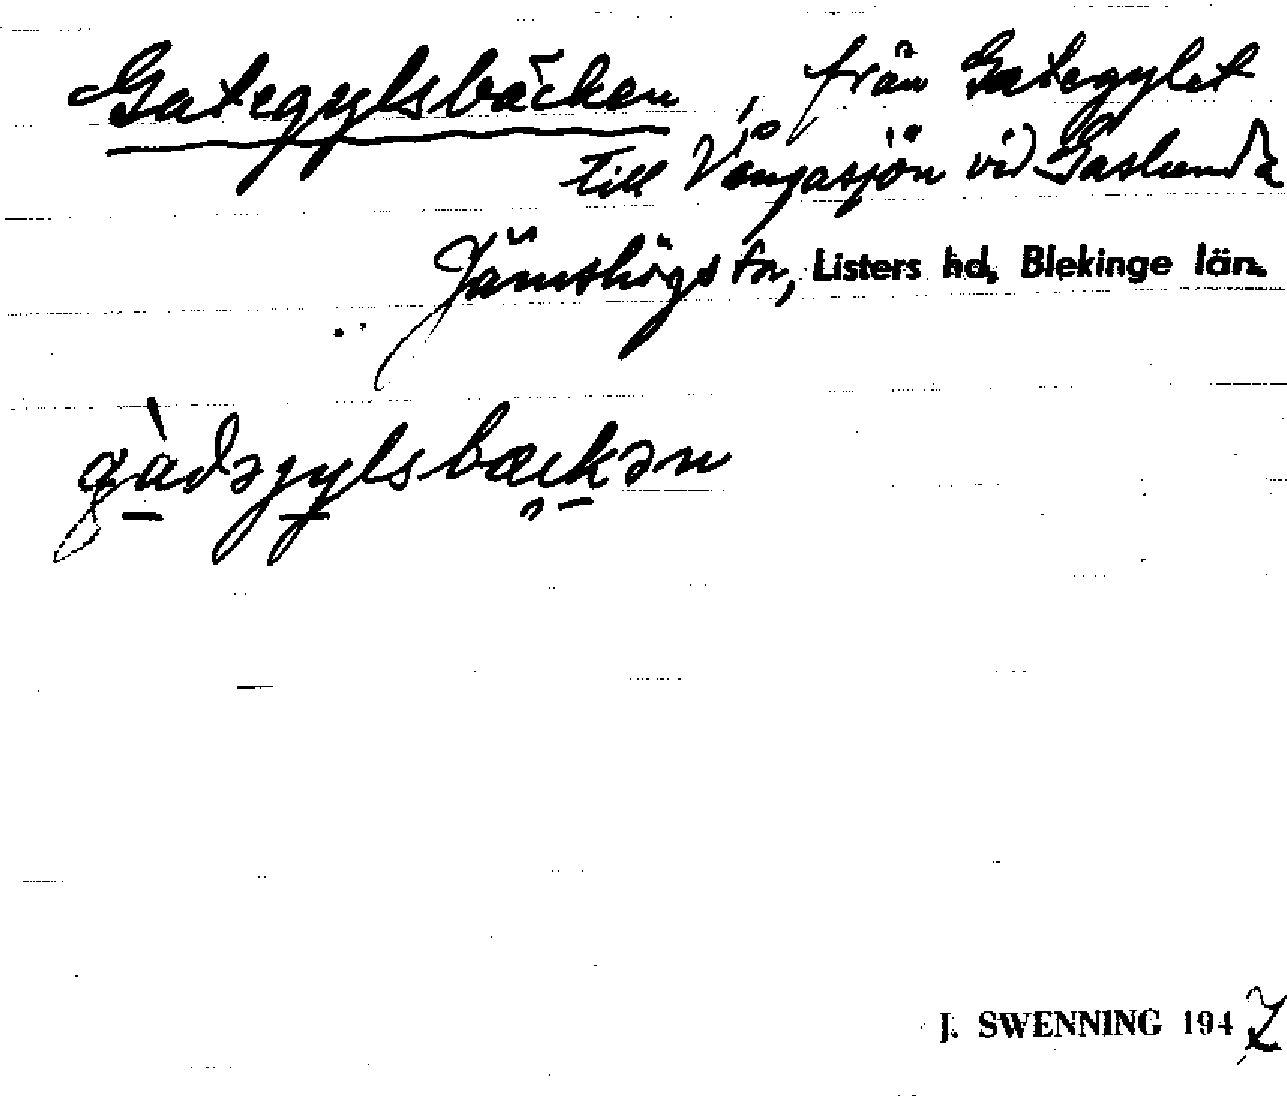 Gategylsbäcken, från Gategylet
till Vångasjön vid Gaslunda
Jämshögs sn, Listers hd, Blekinge län.
gàdəjylsbækən
J. SWENNING 1947